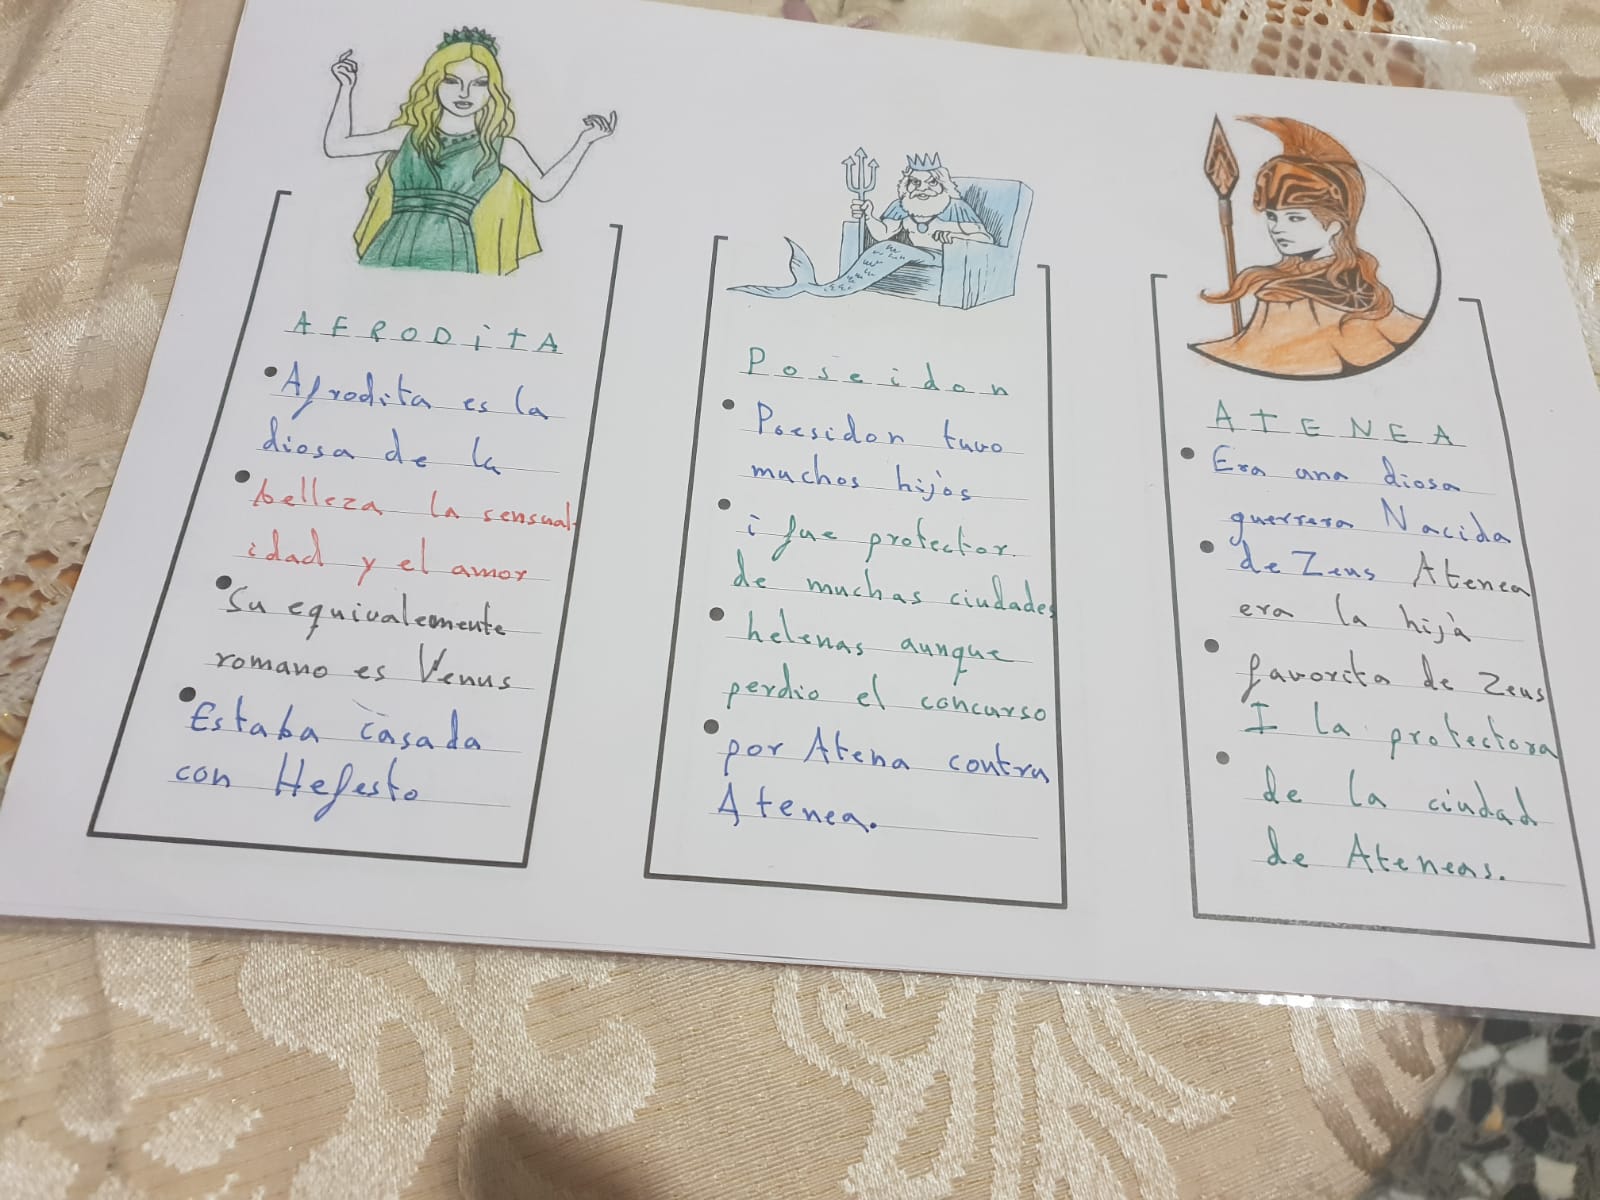 AFRODiTA
Afrodita es la
diosa de la
belleza la sensual-
idad y el amor
Su equivalemente
romano es Venus
Estaba casada
con Hefesto
Poseidon
Poesidon tuvo
muchos hijos
i fue protector
de muchas ciudades
helenas aunque
perdio el concurso
por Atena contra
Atenea.
ATENEA
Era una diosa
guerrera Nacida
de Zeus Atenea
era la hija
favorita de Zeus
I la protectora
de la ciudad
de Ateneas.